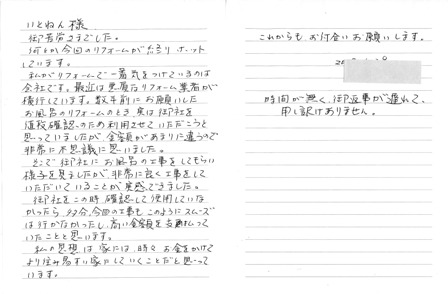 いとねん 様
御苦労さまでした。
何とか今回のリフォームが終り ホット
しています。
私がリフォームで一番気をつけているのは
会社です。最近は悪質なリフォーム業者が
横行しています。数年前にお願いした
お風呂のリフォームのとき、実は御社を
値段確認のため利用させていただこうと
思っていましたが、金額があまりに違うので
非常に不思議に思いました。
そこで御社にお風呂の工事をしてもらい
様子を見ましたが、非常に良く工事をして
いただいていることが実感できました。
御社をこの時、確認して使用していな
かったら 多分、今回の工事も このようにスムーズに
は行かなかったし、高い金額を支払っ
ていたことと思います。
私の思想は 家には、時々 お金をかけて
より住み易すい家にしていくことだと思って
います。
これからも お付合いお願いします。
時間が無く、御返事が遅れて、
申し訳ありません。